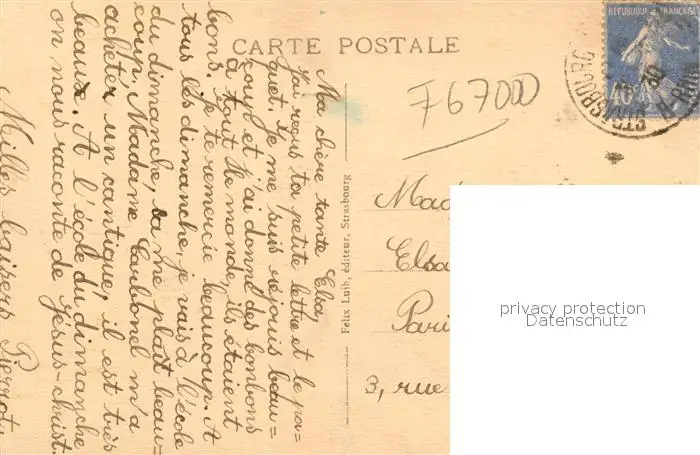 CARTE POSTALE
RÉPUBLIQUE FRANÇAISE
40c
STRASBOURG
F67000
Ma chère tante Elsa,
J'ai reçus ta petite lettre et le pa=
quet. Je me suis réjouis beau=
coup et j'ai donné des bonbons
à tout le monde, ils étaient
bons. Je te remercie beaucoup. A
tous les dimanche, je vais à l'école
du dimanche, sa me plaît beau-
coup, Madame Carbonel m'a
acheter un cantique, il est très
beaux. A l'école du dimanche
on nous raconte de Jésus-christ.
Milles baisers Pierrot.
Felix Luib, éditeur, Strasbourg
Mad
Elsa
Pari
3, rue
privacy protection
Datenschutz